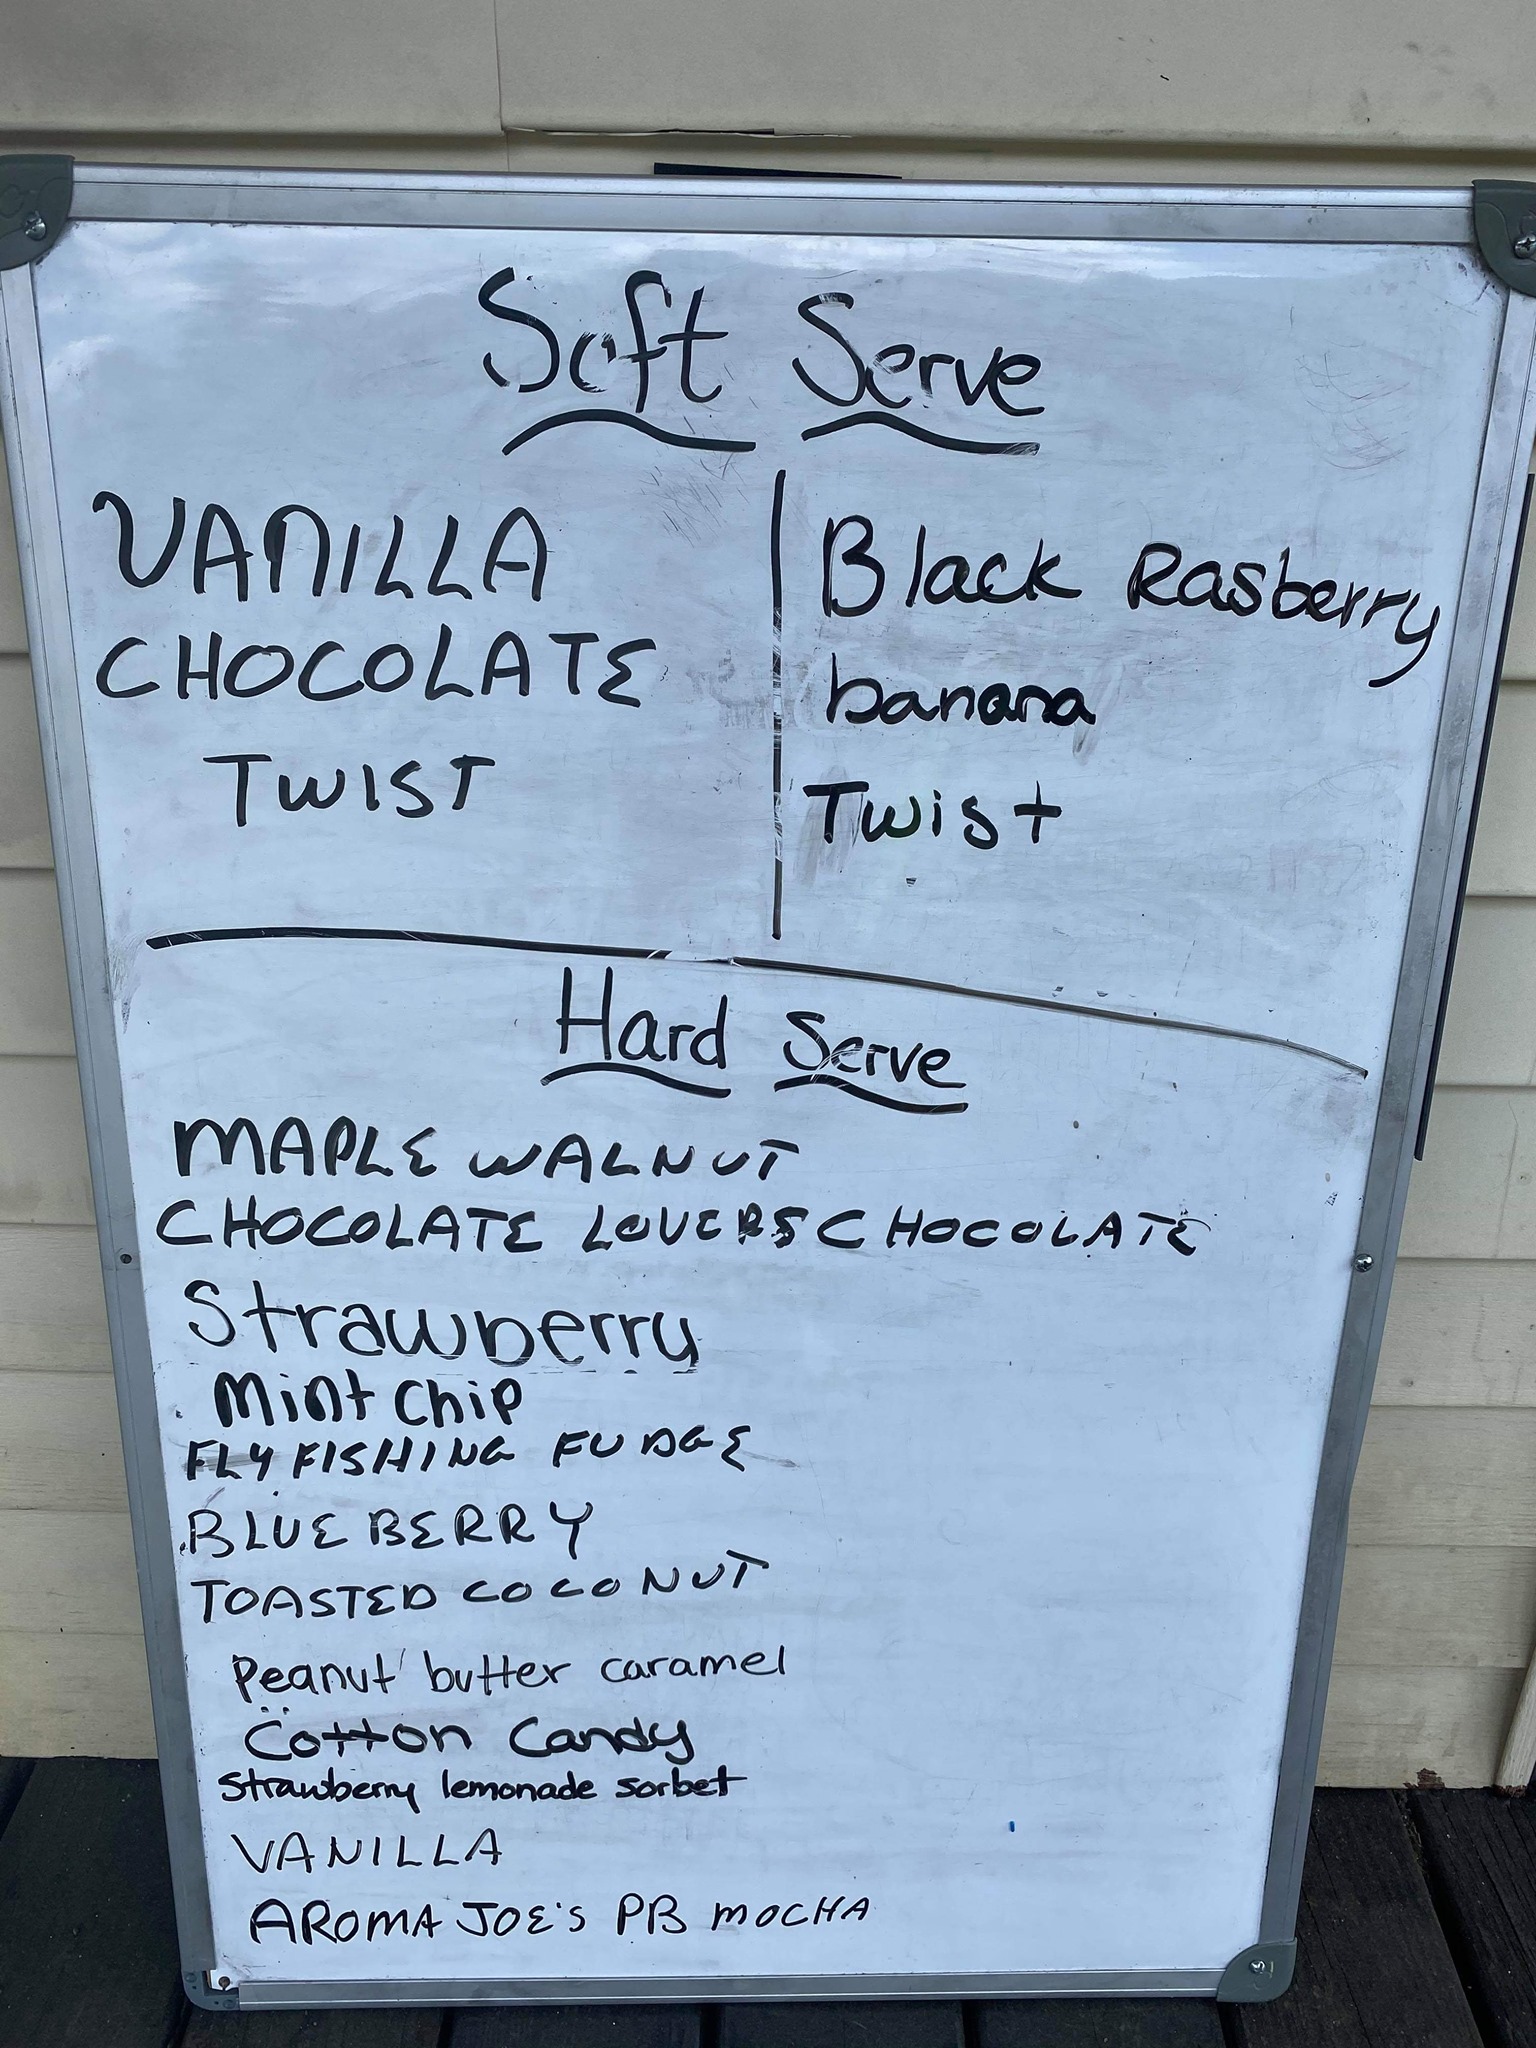 Soft Serve
VANILLA
CHOCOLATE
TWIST
Black Rasberry
banana
Twist
Hard Serve
MAPLE WALNUT
CHOCOLATE LOVERS CHOCOLATE
Strawberry
Mint Chip
FLY FISHING FUDGE
BLUEBERRY
TOASTED COCONUT
Peanut butter caramel
Cotton Candy
Strawberry lemonade sorbet
VANILLA
AROMA JOE'S PB MOCHA